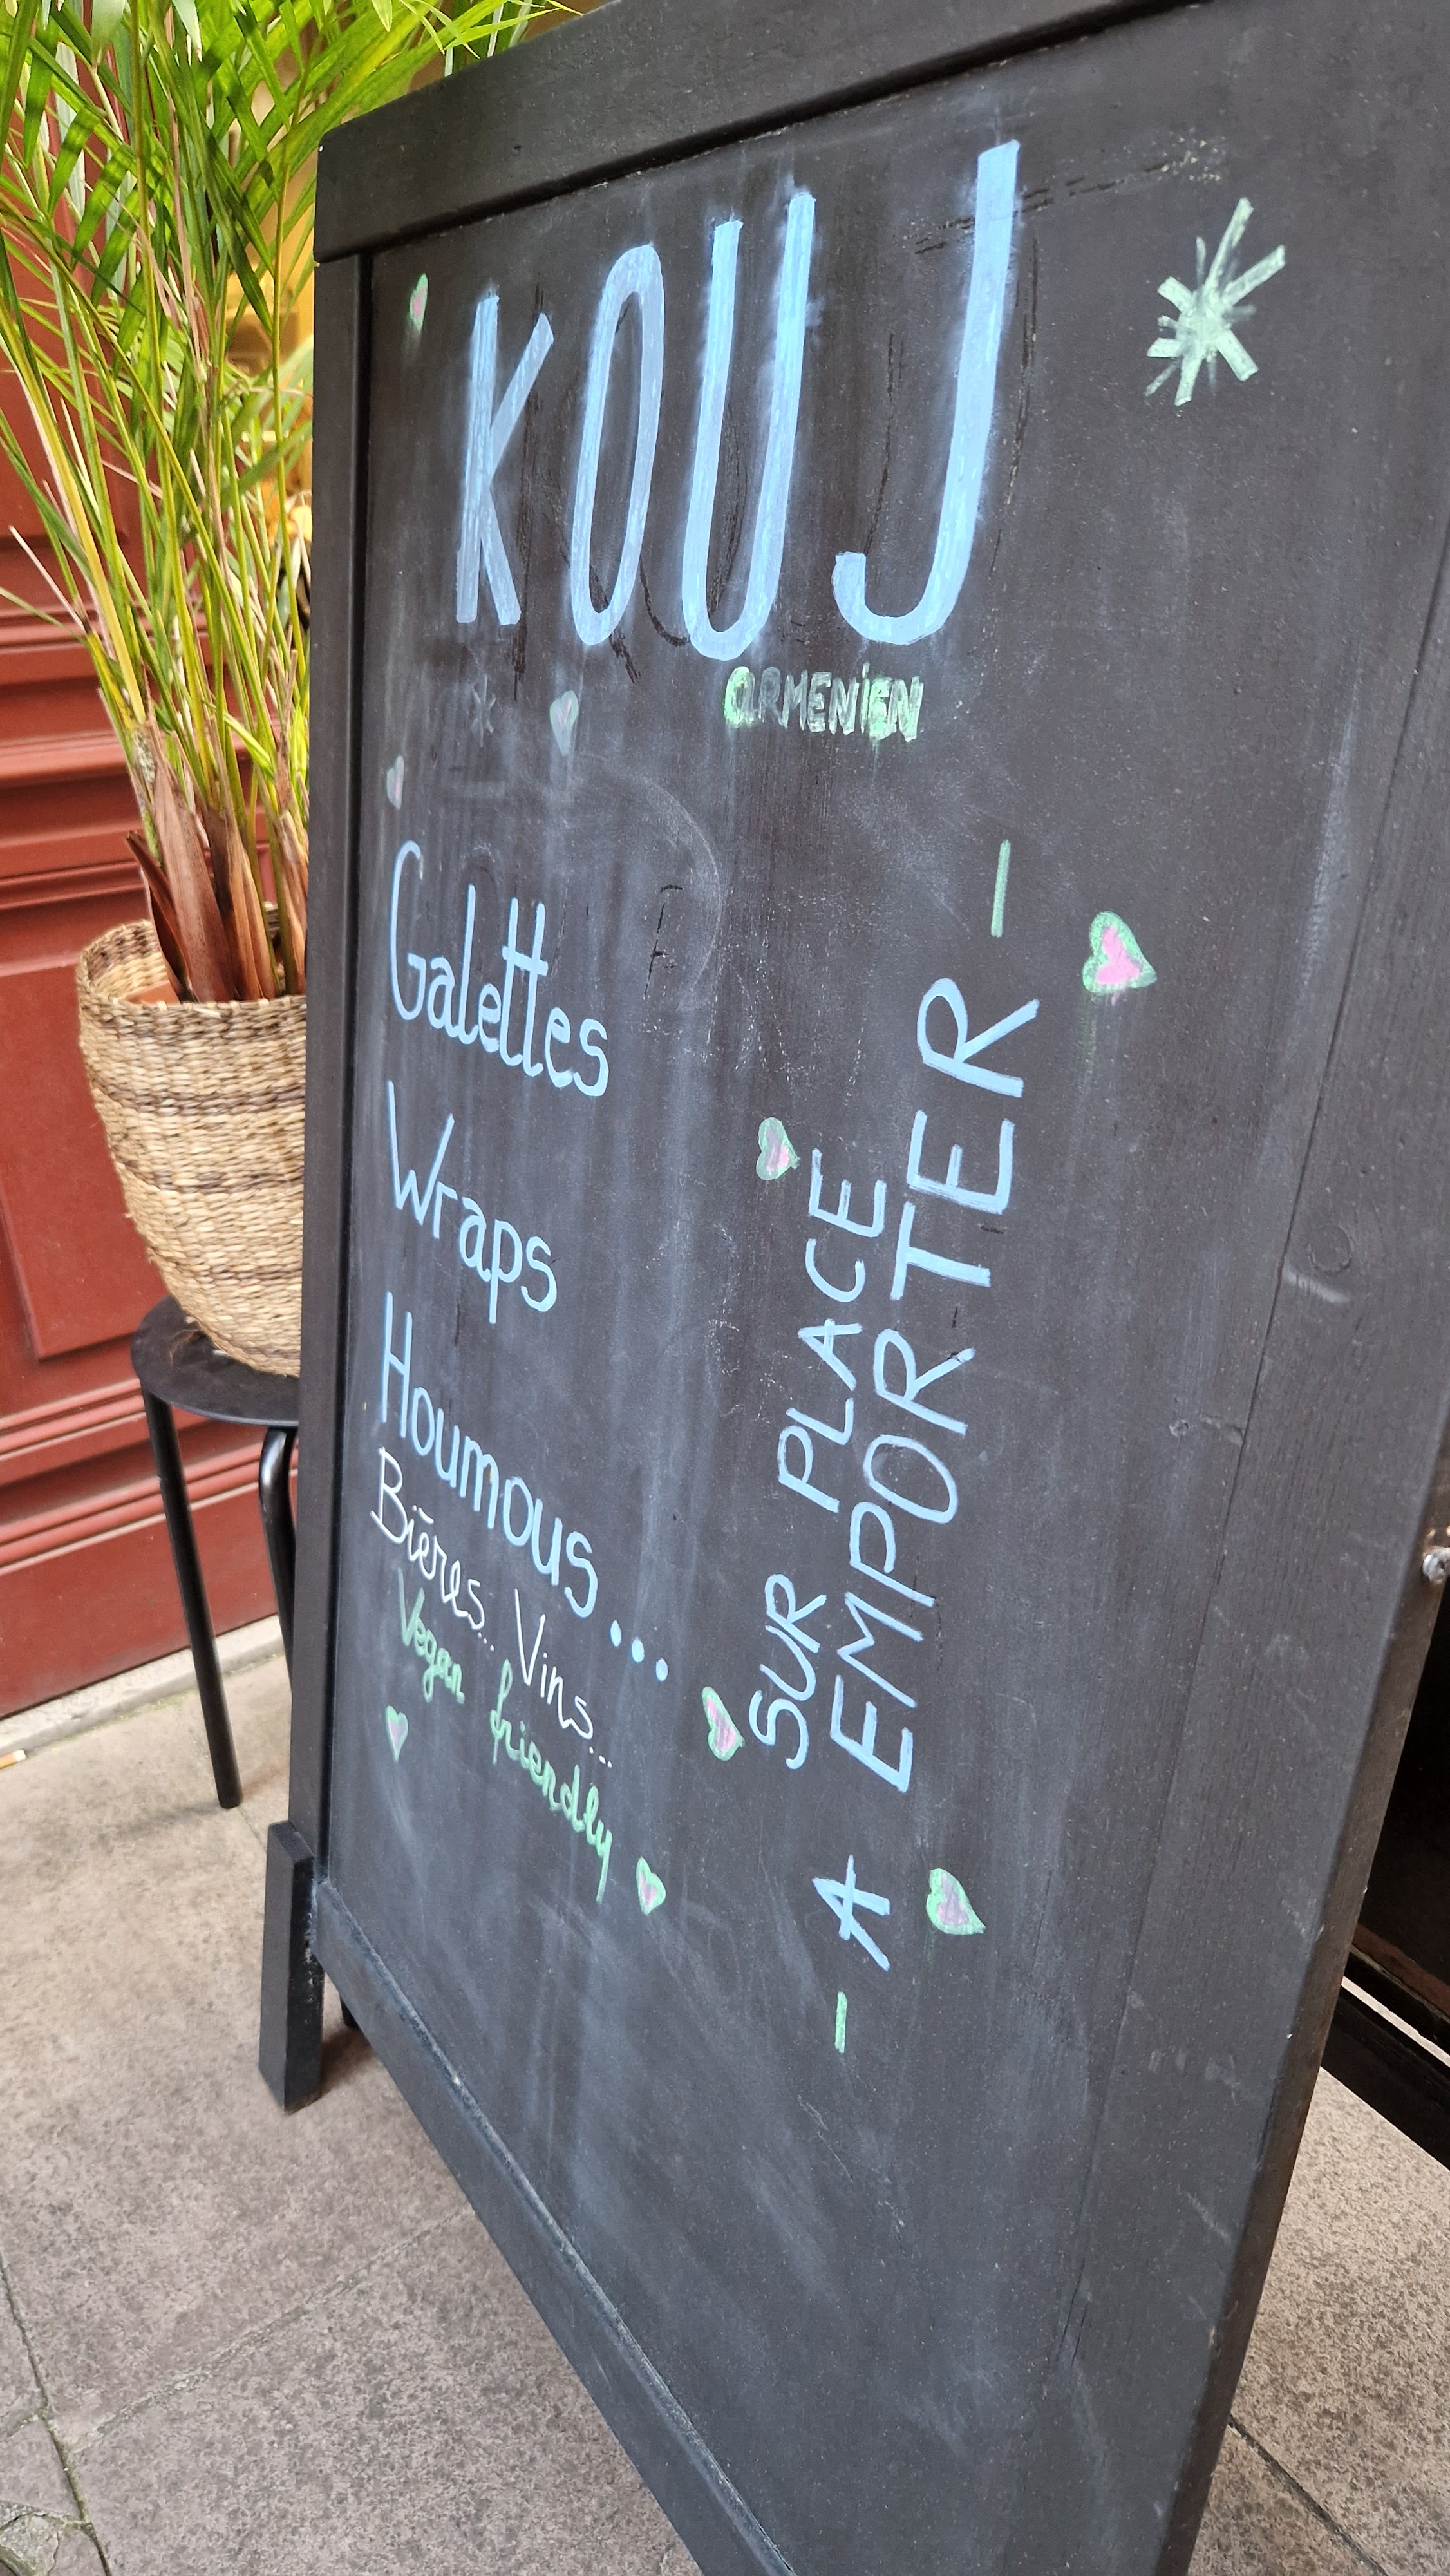 KOUJ
ARMENiEN
Galettes
Wraps
Houmous...
Bières... Vins...
Vegan friendly
SUR PLACE
- A EMPORTER -